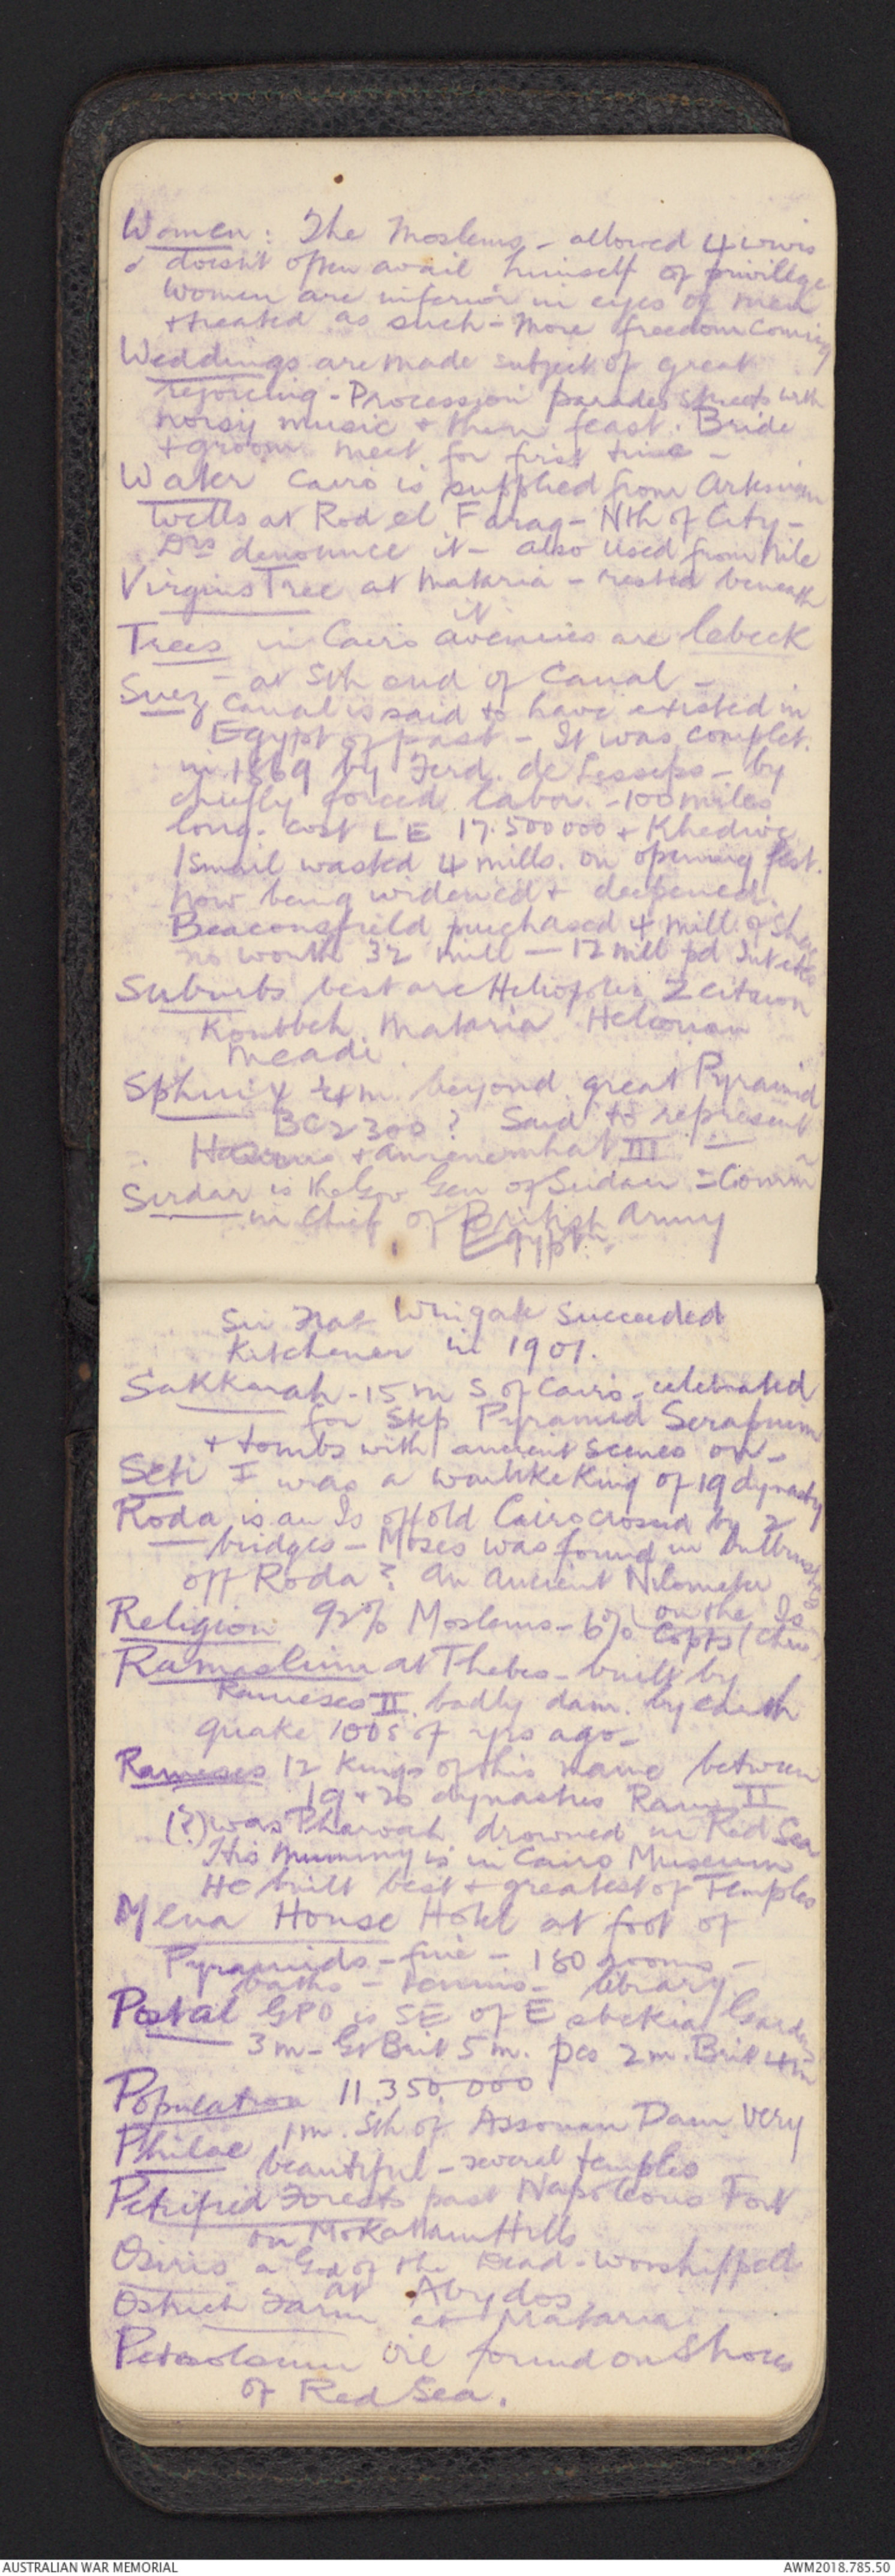 Women : The Moslems - allowed 4 wives
doesn't often avail himself of privilege
Women are inferior in eyes of men
+ treated as such - more freedom coming
Weddings are made subject of great
rejoicing - Procession parades streets with
noisy music + then feast. Bride
+ groom meet for first time -
Water Cairo is supplied from Artesian
Wells at Rod el Farag - Nth of City -
Drs denounce it - also used from Nile
Virgins Tree at Mataria - rested beneath
it
Trees in Cairo avenues are lebeck
Suez - at Sth end of Canal -
Canal is said to have existed in
Egypt of past - It was complet.
in 1869 by Ferd. de Lesseps - by
chiefly forced labor. - 100 miles
long. cost LE 17.500000 + Khedive
Ismail wasted 4 mills. on opening fest.
now being widened + deepened.
Beaconsfield purchased 4 mill. of
worth 32 mill - 12 mill pd
Suburbs best are Heliopolis Zeitoun
Koubbeh Mataria Helouan
Meadi
Sphinx ¼ m. beyond great Pyramid
BC 2300 ? Said to represent
+ Amenemhat III -
Sirdar is the Gov Gen of Sudan = Comm
in Chief of British Army
Egypt.
Sir Wingate succeeded
Kitchener in 1901.
Sakkarah - 15 m S of Cairo - celebrated
for Step Pyramid Serapuem
+ tombs with ancient scenes on -
Seti I was a warlike King of 19 dynasty
Roda is an Is off old Cairo crossed by 2
bridges - Moses was found in bullrushes
off Roda ? An ancient Nilometer
on the Is
Religion 92% Moslems - 6% Copts (
at Thebes - built by
Rameses II. badly dam. by earth
quake 100s of yrs ago -
Rameses 12 Kings of this name between
19 + 20 dynasties Ram II
(?) was Pharoah drowned in Red Sea
His mummy is in Cairo Museum
He built best + greatest of Temples
Mena House Hotel at foot of
Pyramids - fine - 180 rooms -
baths - tennis - library
Postal GPO is SE of Esbekia Gardens
3 m - Gt Brit 5 m. pcs 2 m. Brit 4 m
Population 11.350.000
Philae 1 m. Sth of Assouan Dam very
beautiful - several temples
Petrified Forests past Napoleons Fort
on Mokattam Hills
Osiris a God of the Dead - worshipped
at Abydos.
Ostrich Farm at Mataria
Petroleum oil found on Shores
of Red Sea.
AUSTRALIAN WAR MEMORIAL
AWM2018.785.50